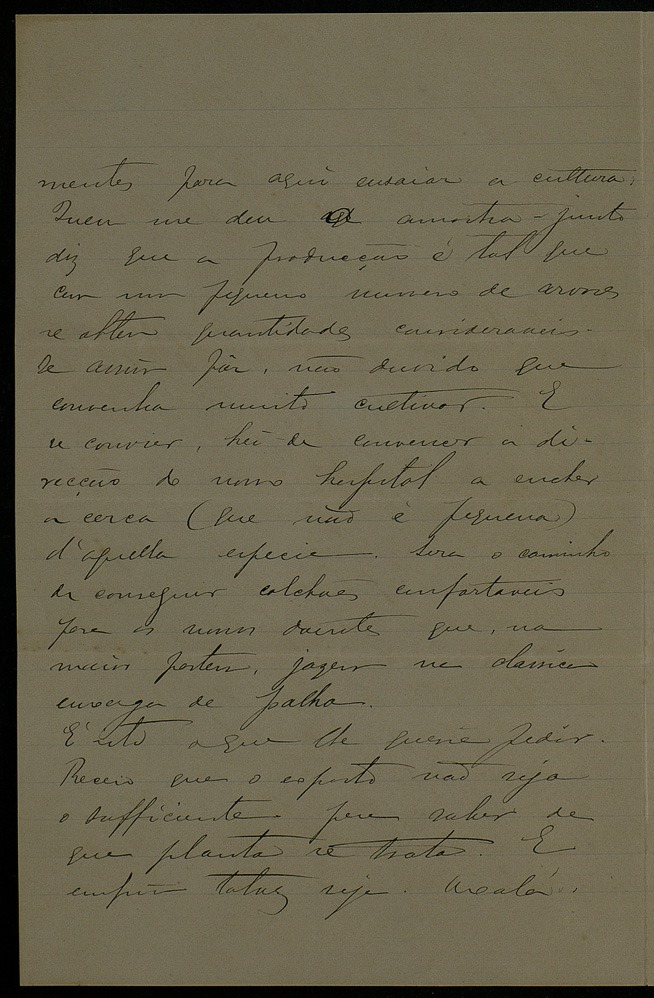 mentes para aqui ensaiar a cultura.
Quem me deu a amostra - junto
diz que a producção é tal que
com um pequeno numero de arvores
se obtem quantidades consideraveis.
Se assim fôr, não duvido que
convenha muito cultivar. E
se convier, hei-de convencer a di-
recção do nosso hospital a encher
a cerca (que não é pequena)
d'aquella especie. Sera o caminho
de conseguir colchões confortaveis
para os nossos doentes que, na
maior parte, jazem na classica
enxerga de palha.
É isto o que lhe queria pedir.
Receio que o exposto não seja
o sufficiente para saber de
que planta se trata. E
emfim talvez seja. Oxalá.